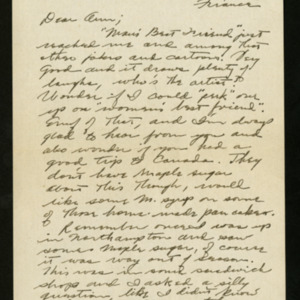 France
Dear Ann;
"Man's Best Friend" just
reached me and among the
other jokes and cartoons. Very
good and it draws plenty of
laughs, who's the artist to
Wonder if I could "pick" one
up on "women's best friend".
of that, and I'm always
glad to hear from you and
also wonder if you had a
good trip to Canada. They
don't have Maple sugar
about this though, would
like some M. syrup on some
of those home made pancakes.
Remember once I was up
in Northampton and saw
some Maple sugar, of course
it was way out of season.
This was in some sandwich
shops and I asked a silly
question, like I didn't know